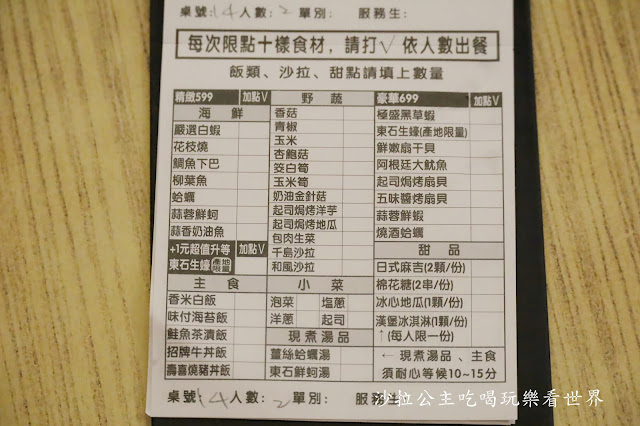 桌號:14人數:2單別: 服務生:
每次限點十樣食材,請打√依人數出餐
飯類、沙拉、甜點請填上數量
精緻599 加點V
海鮮
嚴選白蝦
花枝燒
鯛魚下巴
柳葉魚
蛤蠣
蒜蓉鮮蚵
蒜香奶油魚
+1元超值升等 加點V
東石生蠔 產地限量
主食
香米白飯
味付海苔飯
鮭魚茶漬飯
招牌牛丼飯
壽喜燒豬丼飯
野蔬
香菇
青椒
玉米
杏鮑菇
筊白筍
玉米筍
奶油金針菇
起司焗烤洋芋
起司焗烤地瓜
包肉生菜
千島沙拉
和風沙拉
小菜
泡菜 塩蔥
洋蔥 起司
現煮湯品
薑絲蛤蠣湯
東石鮮蚵湯
豪華699 加點V
極盛黑草蝦
東石生蠔(產地限量)
鮮嫩扇干貝
阿根廷大魷魚
起司焗烤扇貝
五味醬烤扇貝
蒜蓉鮮蝦
燒酒蛤蠣
甜品
日式麻吉(2顆/份)
棉花糖(2串/份)
冰心地瓜(1顆/份)
漢堡冰淇淋(1顆/份)
↑(每人限一份)
←現煮湯品、主食
須耐心等候10~15分
桌號:14人數:2單別: 服務生:
沙拉公主吃喝玩樂看世界